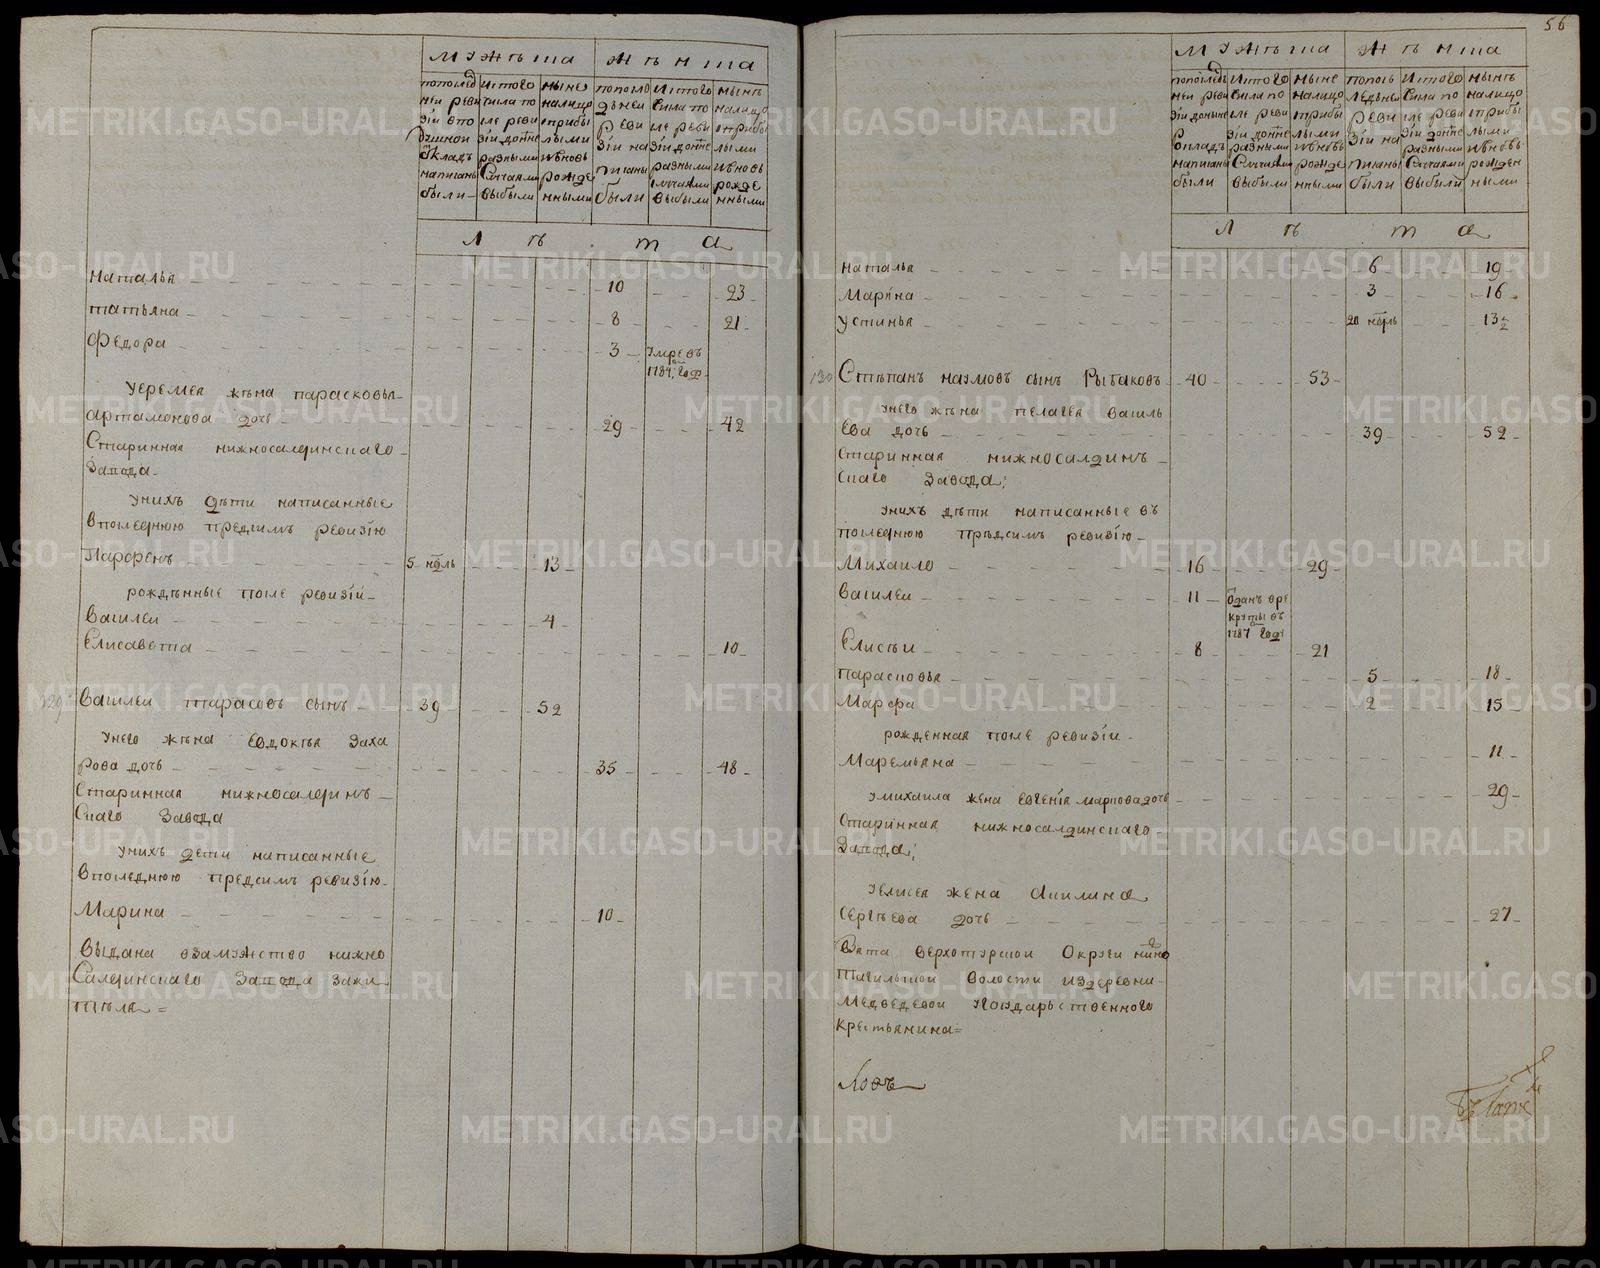 мужѣска
женска
попослед
ней реви
зіи
написаны
были
ис того
числа по
сле реви
зіи до нне
разными
случаями
выбыли
ныне
налицо
сприбы
лыми
и вновь
рожде
нными
попосле
дней
реви
зіи на
писаны
были
ис того
числа по
сле реви
зіи донне
разными
случаями
выбыли
нынѣ
налицо
сприбы
лыми
и вновь
рожде
нными
лѣта
наталья 10 23
татьяна 8 21
Федора 3 умре въ
1784: году
Уеремея жѣна парасковья
артамонова дочь 29 42
Старинная нижносалдинскаго
завода
уних дѣти написанные
впоследнюю предсимъ ревизію
Парфенъ 5 недѣль 13
рожденные после ревизіи
Василеи 4
Елисавета 10
129 Василеи тарасовъ сынъ 39 52
Унего жѣна Евдокѣя Заха
рова дочь 35 48
Старинная нижносалдинъ
скаго завода
унихъ дети написанные
впоследнюю предсимъ ревизію
Марина 10
выдана взамужство нижно
Салдинскаго завода зажи
теля
56
мужѣска
женска
попоследъ
ней реви
зіи
написаны
были
ис того
числа по
сле реви
зіи донне
разными
случаями
выбыли
ныне
налицо
сприбы
лыми
ивновь
рожде
нными
попосъ
ледьней
реви
зіи на
писаны
были
ис того
числа по
сле реви
зіи донне
разными
случаями
выбыли
нынѣ
налицо
сприбы
лыми
и вновь
рожден
ными
лѣта
наталья 6 19
Марина 3 16
устинья 20 недѣль 13 ½
130 Стѣпанъ наумовъ сынъ Рыбаковъ 40 53
унего жѣна пелагея василь
ева дочь 39 52
старинная нижносалдинъ
скаго завода;
унихъ дѣти написанные въ
последнюю прѣдсимъ ревизію
Михаило 16 29
василеи 11 отданъ вре
круты въ
1787 году
Елисѣи 8 21
парасковья 5 18
Марфа 2 15
рожденная после ревизіи
Маремьяна 11
умихаила жена евгенія марковадочь 29
старинная нижносалдинскаго
завода;
уелисея жена Акилина
сергѣева дочь 27
Взята верхотурской Округи нижно
тагильской волости издеревни
Медведевой государственного
крестьянина